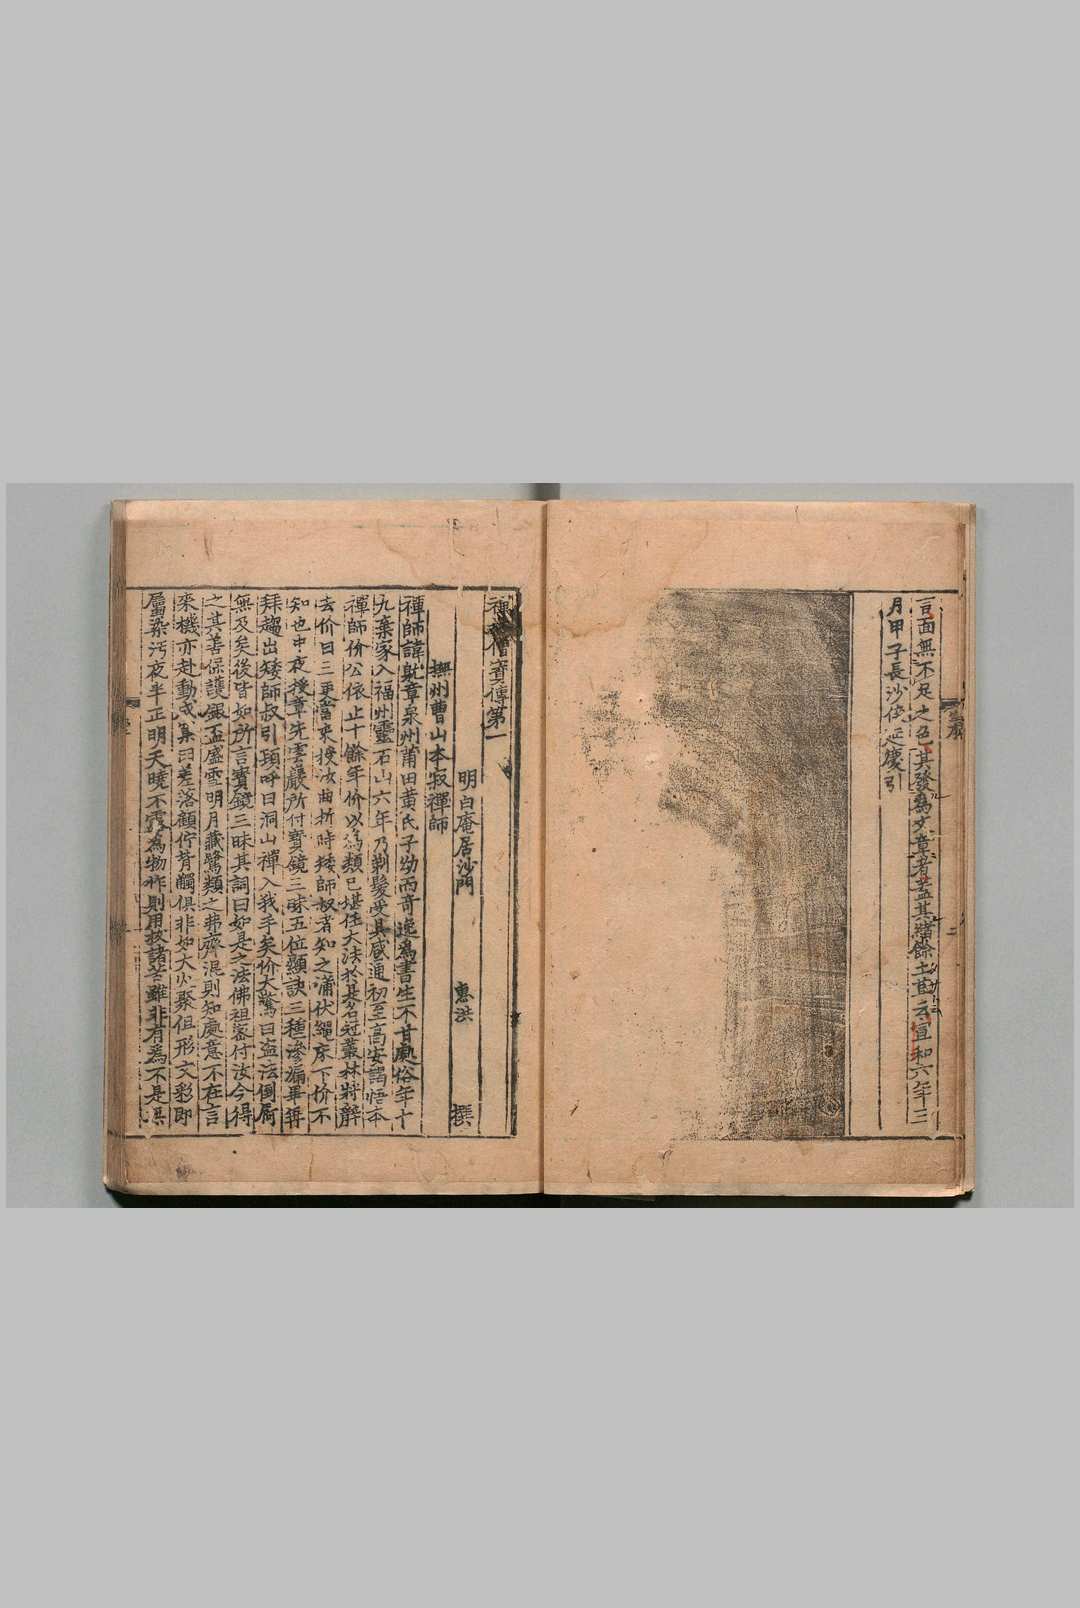 言面無不足之色其發爲文章者盖其緒餘土苴云宣和六年三
月甲子長沙侯延慶引
禪僧寶傳第一
明白庵居沙門 惠洪 撰
撫州曹山本寂禪師
禪師諱躭章泉州莆田黃氏子幼而奇逸爲書生不甘處俗年十
九棄家入福州靈石山六年乃剃髮受具咸通初至高安謁悟本
禪師价公依止十餘年价以爲類己堪任大法於是名冠叢林將辭
去价曰三更當來授汝曲折時矮師叔者知之蒲伏繩床下价不
知也中夜授章先雲巖所付寶鏡三昧五位顯訣三種滲漏畢再
拜趍出矮師叔引頸呼曰洞山禪入我手矣价大驚曰盗法倒屙
無及矣後皆如所言寶鏡三昧其詞曰如是之法佛祖密付汝今得
之其善保護銀盃盛雪明月藏鷺類之弗齊混則知處意不在言
來機亦赴動成窠臼差落顧佇背觸俱非如大火聚但形文彩即
屬染汚夜半正明天曉不露爲物作則用拔諸苦雖非有爲不是無